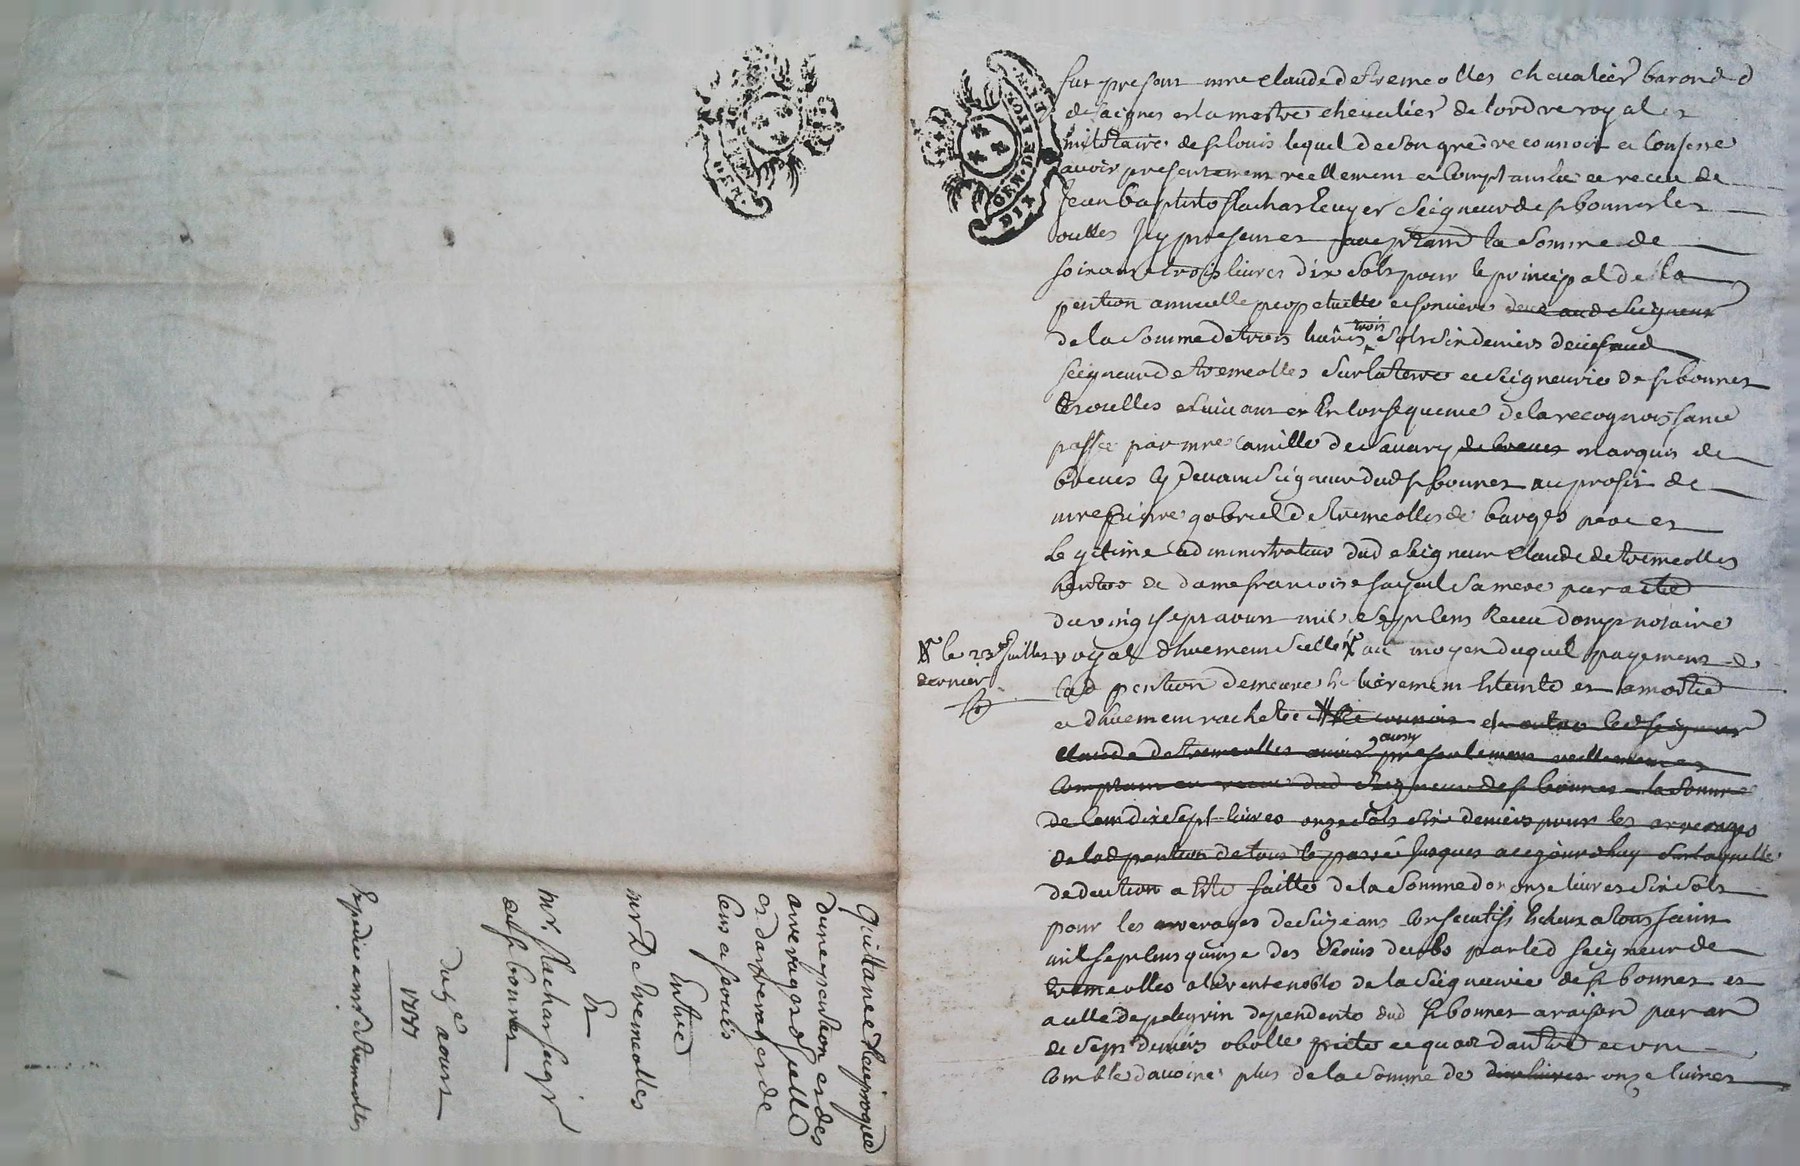 fut present mre claude de tremeolles chevalier baron d
de saignes et la mestre chevalier de lordre royal et
militaire de st louis lequel de son gré reconnoit et confesse
avoir presentement reellement et comptant eu et receu de
Jean baptiste flachat Ecuyer seigneur de st bonnet les
oulles Icy present acceptant la somme de
soixante trois livres dix sols pour le principal de la
pention annuelle perpetuelle et fonciere deue aud seigneur
de la somme de trois livres trois sols six deniers deüe aud
seigneur de tremeolles sur la terre et seigneurie de st bonnet
les oulles et suivant et En consequence de la recognoissance
passée par mre Camille de savary de breves marquis de
breves cy devant seigneur dud st bonnet au profit de
mre pierre gabriel de tremeolles de barges pere et
legitime administrateur dud seigneur claude de tremeolles
heritier de dame francoise sa mere par acte
du vingt sept aoust mil sept cens Receu notaire
royal & duement scellé au moyen duquel payement
lad pention demeure entierement Eteinte et amortie
et duement rachetée
le 23e Juillet
dernier
claude de tremeolles avoir aussy presentement reellement et
comptant eu receu dud seigneur de st bonnet la somme
de cent dix sept livres onze sols six deniers pour les arrerages
de lad pention de tout le passé jusques a cejourdhuy sur laquelle
deduction a Eté faitte de la somme de onze livres six sols
pour les arrerages de seize ans consecutifs Echeus a toussaint
mil sept cens quinze des deubs par led seigneur de
tremeolles a la rente noble de la seigneurie de st bonnet et
a celle de pelegrin dependente dud st bonnet a raison par an
de sept deniers obolle et quar dautre et un
comble davoine plus de la somme de dix livres onze livres
Quittance Reciproque
dune pention et des
arrerages dicelle
et darrerages de
cens et servis
Entre
mr De tremeolles
Et
mr. flachat seigr
de st bonnet
du 9e aoust
1731
Expedié a mr de tremeolles
DIX DEN. DE LION